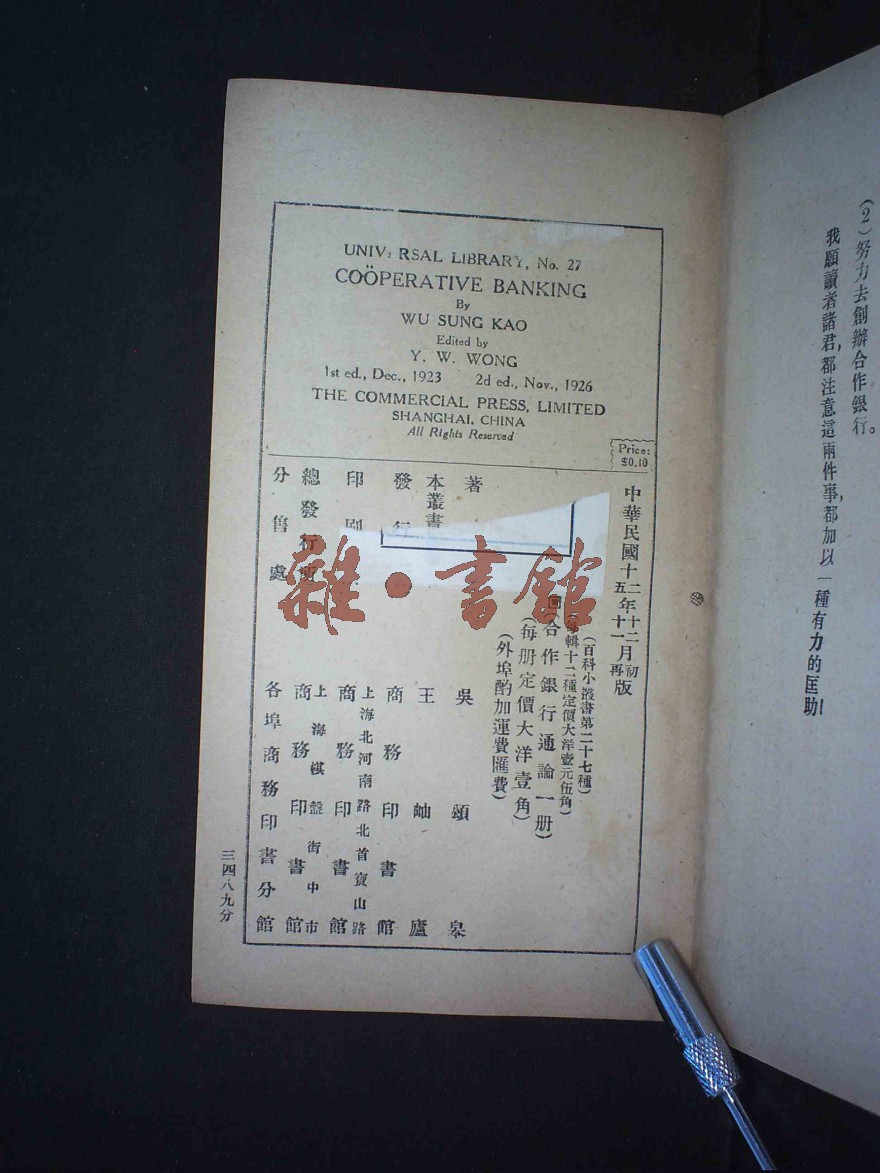 (2)努力去創辦合作銀行。
我願讀者諸君,都注意這兩件事,都加以一種有力的匡助!
UNIV RSAL LIBRARY, No. 27
COÖPERATIVE BANKING
By
WU SUNG KAO
Edited by
Y. W. WONG
1st ed., Dec., 1923 2d ed., Nov., 1926
THE COMMERCIAL PRESS, LIMITED
SHANGHAI, CHINA
All Rights Reserved
Price:
$0.10
中華民國十二年十二月初版
十五年十一月再版
(百科小叢書第二十七種)
每輯十二種定價大洋壹元伍角)
合作銀行通論一册)
(每册定價大洋壹角)
(外埠酌加運費匯費)
著 吳頌皋
本叢書 王岫廬
發行 商務印書館
印刷 上海北河南路北首寶山路
商務印書館
總發行所 上海棋盤街中市
商務印書館
分售處 各埠商務印書分館
三四八九分
雜·書館